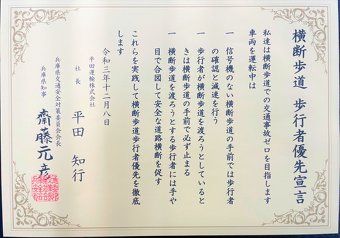 横断歩道 歩行者優先宣言
私達は横断歩道での交通事故ゼロを目指します
車両を運転中は
一 信号機のない横断歩道の手前では歩行者
の確認と減速を行う
一 歩行者が横断歩道を渡ろうとしていると
きは横断歩道の手前で必ず止まる
一 横断歩道を渡ろうとする歩行者には手や
目で合図して安全な道路横断を促す
これらを実践して横断歩道歩行者優先を徹底
します
令和三年十二月八日
平田運輸株式会社
社長 平田 知行
兵庫県交通安全対策委員会会長
兵庫県知事 齋藤元彦